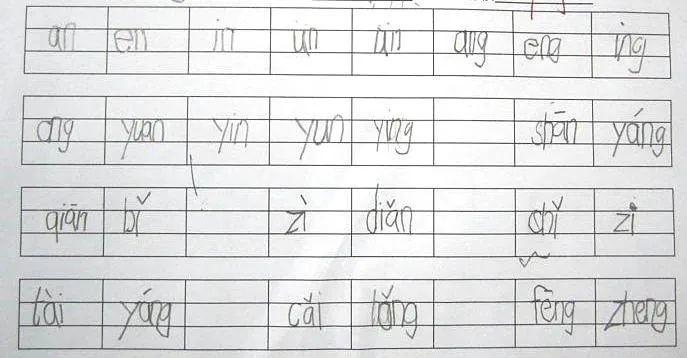 an en in un ün ang eng ing
ong yuan yin yun ying shān yáng
qiān bǐ zì diǎn shǐ zi
tài yáng cǎi tǎng fēng zheng